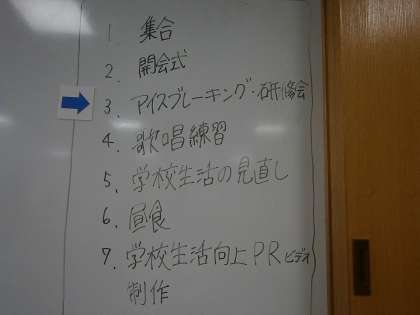 1 集合
2. 開会式
3. アイスブレーキング・研修会
4. 歌唱練習
5. 学校生活の見直し
6. 昼食
7. 学校生活向上PRビデオ
制作